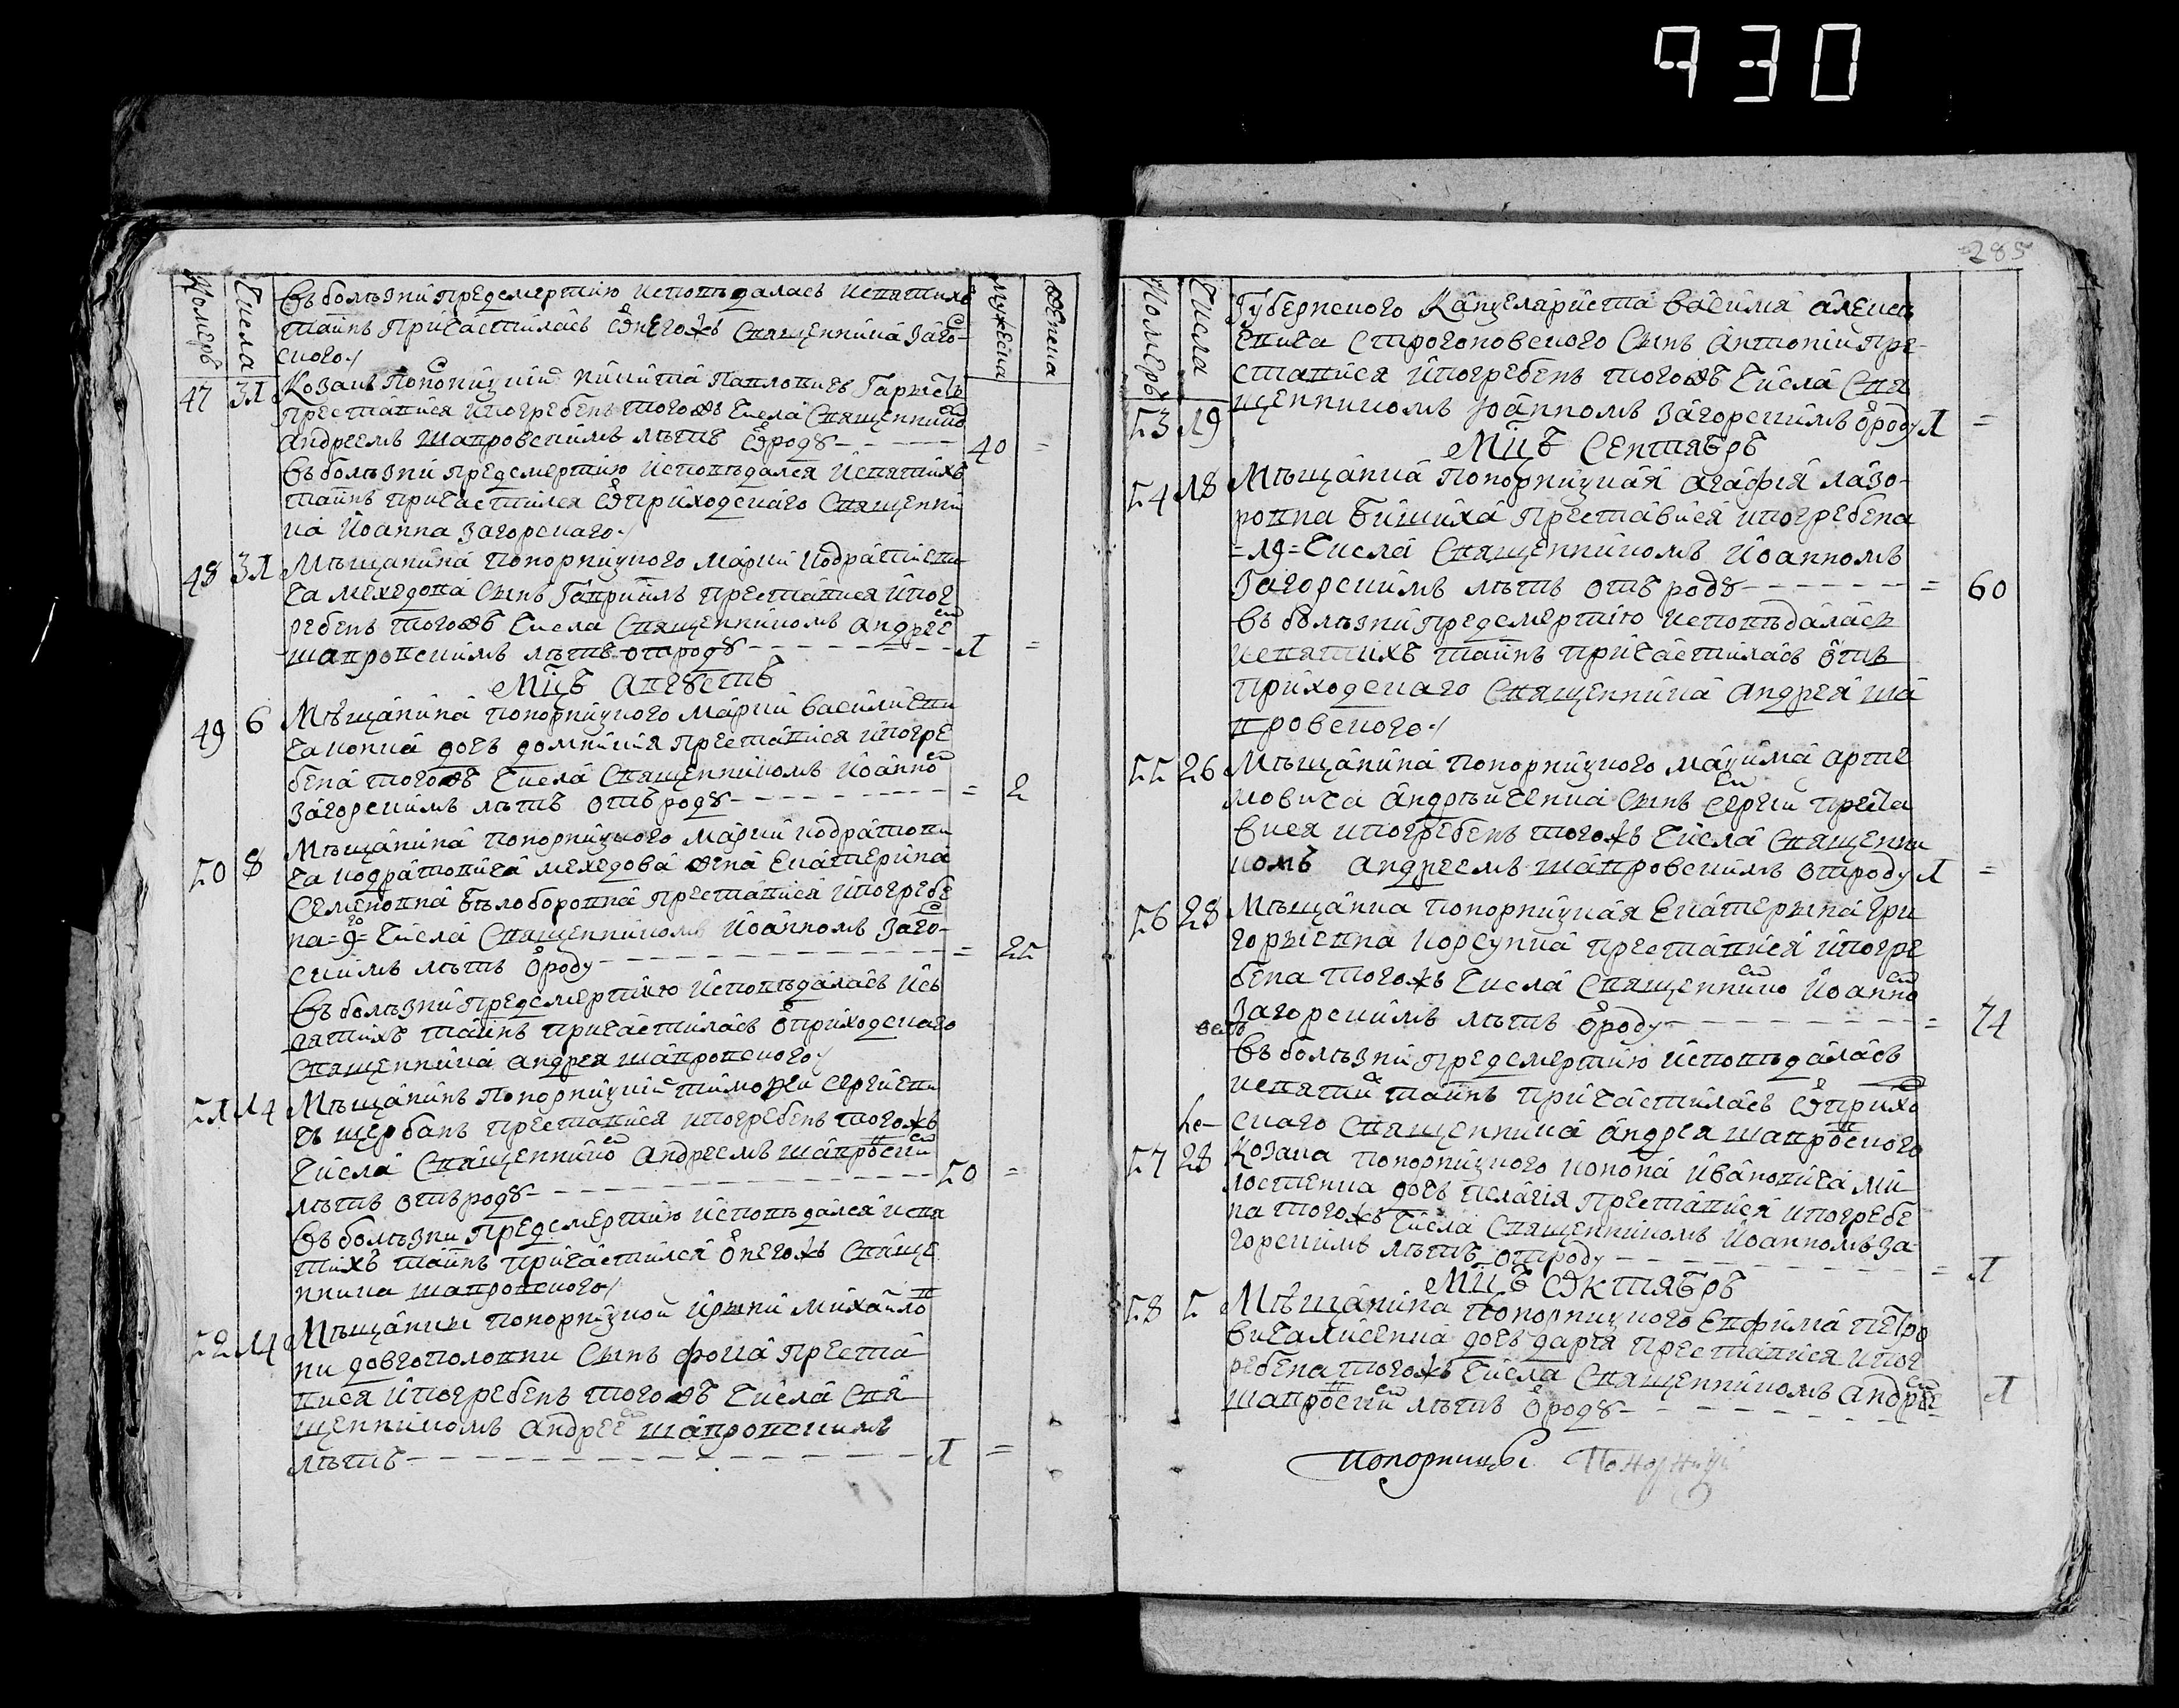 930
285
Номеръ
Числа
мужеска
женска
Въ болѣзни предсмертню исповѣдалась исвятихъ
таинъ причастилась ѿнегожъ священника Заго-
ского
47 31 Козакъ Понорницкій Никита Павловичъ Гаркѣвъ
преставися ипогребенъ тогожъ числа Священнико
Андреемъ Шапровскимъ лѣтъ ѿроду 40 =
Въ болѣзни предсмертню исповѣдался исвятихъ
таинъ причастился ѿприходскаго Священни
ка Иоанна Загорскаго
48 31 Мѣщанина понорницкого Марки Кодратіеви
ча Мехедона Сынъ Гавриилъ преставися ипог
ребенъ тогожъ числа Священникомъ Андрее
Шапровскимъ лѣтъ отроду 1 =
Мцъ Августъ
49 6 Мѣщанина понорницкого Марки Василиеви
ча дочъ Домникия преставися ипогре
бена тогожъ числа Священникомъ Иоанно
Загорскимъ лѣтъ отъ роду = 2
50 8 Мѣщанина понорницкого Марки
ча Кодратовича Мехедова жена Екатерина
Семеновна Бѣлоборовна преставися ипогребе
на =9= числа Священникомъ Иоанномъ Заго-
скимъ лѣтъ ѿроду = 25
Въ болѣзни предсмертию исповѣдалась исъ
вятихъ таинъ причастилась ѿприходскаго
Священника Андрея Шапровского
51 14 Мѣщанинъ Понорницкій Тимофеи Сергіеви
чъ Щербакъ преставися ипогребенъ тогожъ
числа Священнико Андреемъ Шапровски
лѣтъ отъроду 50 =
Въ болѣзни предсмертню исповѣдался исвя
тихъ таинъ причастился ѿнегожъ Священ
нника Шапровского
52 14 Мѣщанки понорницкой Ирини Михайло
ни Довгополовни Сынъ Фока преста
вися ипогребенъ тогожъ числа Свя
щенникомъ Андрее Шапровскимъ
лѣтъ 1 =
Номеръ
Числа
Губернского Канцеляриста Василия Алексѣ
евича Строгоновского Сынъ Антоний пре-
ставися ипогребенъ тогожъ числа Свя
53 19 щенникомъ Иоанномъ Загорскимъ ѿроду 1 =
Мцъ Сентябрь
54 18 Мѣщанка понорницкая Агафия Лазо-
ровна Бишиха преставися ипогребена
=19= числа Священникомъ Иоанномъ
Загорскимъ лѣтъ отъ роду = 60
Въ болѣзни предсмертню исповѣдалась
исвятихъ таинъ причастилась отъ
приходскаго Священника Андрея Ша
провского
55 26 Мѣщанина понорницкого Маѯима Арте
мовича Андрѣиченка Сынъ Сергіи преста
вися ипогребенъ тогожъ числа Священни
комъ Андреемъ Шапровскимъ отроду 1 =
56 28 Мѣщанка понорницкая Екатерина Гри
гориевна Корсунка преставися ипогре
бена тогожъ числа Священнико Иоанно
Загорскимъ лѣтъ ѿроду = 74
Въ болѣзни предсмертню исповѣдалась
исвяти таинъ причастилась ѿприхо
скаго Священника Андрея Шапровского
57 28 Козака понорницкого Конона Ивановича Ми
лостенка дочъ Пелагія преставися ипогребе
на тогожъ числа Священникомъ Иоанномъ За-
горскимъ лѣтъ отроду = 1
Мцъ Октябрь
58 5 Мѣщанина понорницкого Евфима Петро
вича Лисенка дочъ Дария преставися ипог
ребена тогожъ числа Священникомъ Андрее
Шапровски лѣтъ ѿроду 1
Понорницы Понорниці